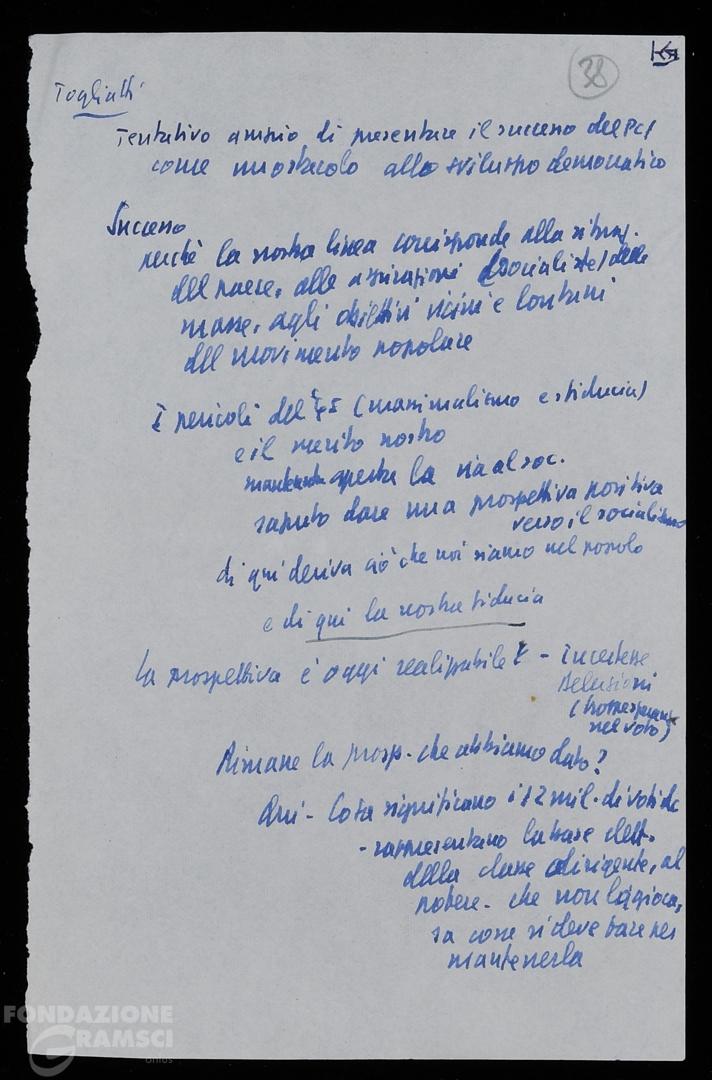 38
Togliatti
Tentativo ampio di presentare il successo del PCI
come un ostacolo allo sviluppo democratico
Successo
perché la nostra linea corrisponde alla situaz.
del paese, alle aspirazioni (socialiste) delle
masse, agli obiettivi vicini e lontani
del movimento popolare
I pericoli del '45 (massimalismo e sfiducia)
e il merito nostro
aperta la via al soc.
saputo dare una prospettiva positiva
verso il socialismo
di qui deriva ciò che noi siamo nel popolo
e di qui la nostra fiducia
La prospettiva è oggi realizzabile? - Incertezze
Delusioni
(troppe speranze
nel voto)
Rimane la prosp. che abbiamo dato?
Qui - Cosa significano i 12 mil. di voti dc
- rappresentano la base elett.
della classe dirigente, al
potere - che non la gioca,
sa cosa si deve fare per
mantenerla
FONDAZIONE
GRAMSCI
onlus